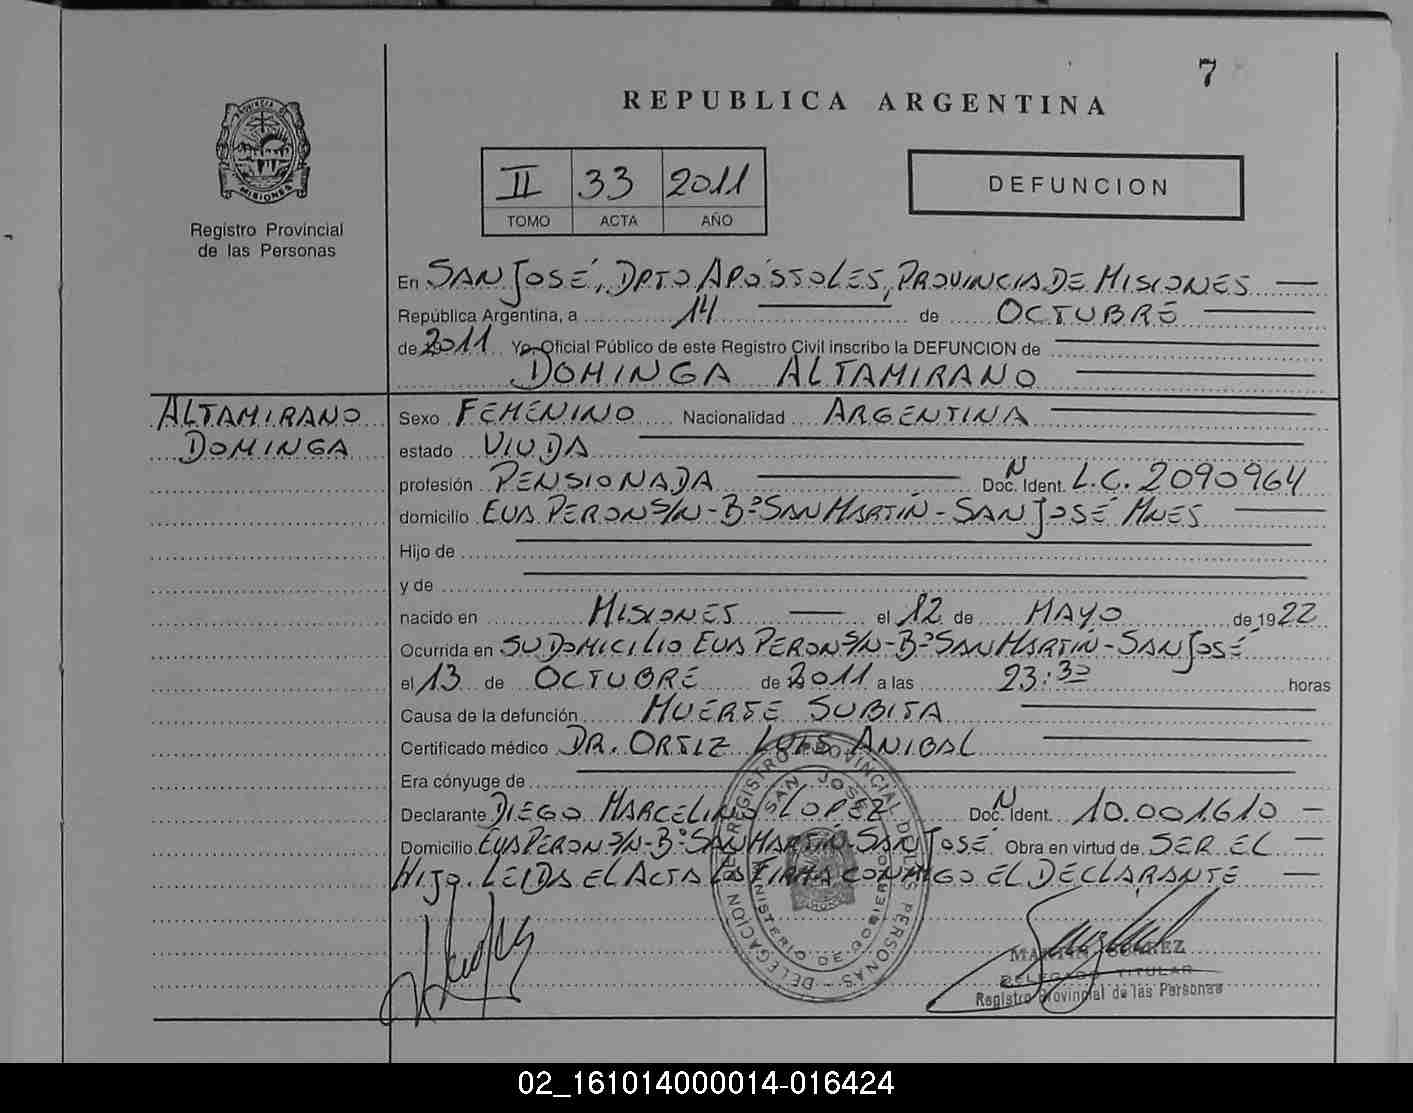 7
REPUBLICA ARGENTINA
PROVINCIA DE MISIONES
Registro Provincial
de las Personas
II 33 2011
TOMO ACTA AÑO
DEFUNCION
En SAN JOSÉ, DPTO APÓSTOLES, PROVINCIA DE MISIONES
República Argentina, a 14 de OCTUBRE
de 2011 Yo, Oficial Público de este Registro Civil inscribo la DEFUNCION de
DOMINGA ALTAMIRANO
ALTAMIRANO
DOMINGA
Sexo FEMENINO Nacionalidad ARGENTINA
estado VIUDA
profesión PENSIONADA Doc. N Ident. L.C. 2090964
domicilio EVA PERON S/N - Bº SAN MARTÍN - SAN JOSÉ MNES
Hijo de
y de
nacido en MISIONES el 12 de MAYO de 1922
Ocurrida en SU DOMICILIO EVA PERON S/N - Bº SAN MARTÍN - SAN JOSÉ
el 13 de OCTUBRE de 2011 a las 23:30 horas
Causa de la defunción MUERTE SUBITA
Certificado médico DR. ORTIZ LUIS ANIBAL
Era cónyuge de
Declarante DIEGO MARCELINO LOPEZ Doc. N Ident. 10.001.610
Domicilio EVA PERON S/N - Bº SAN MARTÍN - SAN JOSÉ Obra en virtud de SER EL
HIJO. LEIDA EL ACTA LA FIRMA CONMIGO EL DECLARANTE
REGISTRO PROVINCIAL DE LAS PERSONAS - DELEGACION
SAN JOSE
MINISTERIO DE GOBIERNO
DELEGADO TITULAR
Registro Provincial de las Personas
02_161014000014-016424